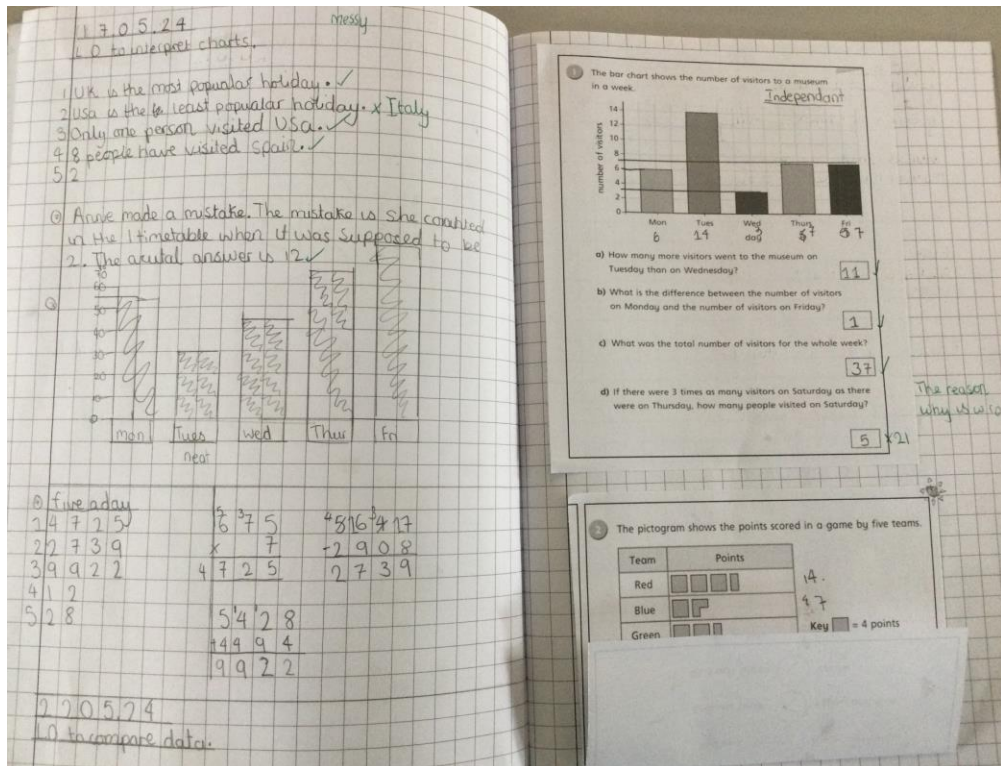 17.05.24
messy
LO to interpret charts.
1 UK is the most popunlar holiday. ✓
2 Usa is the least popualar holiday. x Italy
3 Only one person visited USa. ✓
4 8 people have visited spain. ✓
5 2
made a mistake. The mistake is she
in the 1 timetable when it was supposed to be
2. The acutal answer is 12 ✓
70
60
50
40
30
20
10
0
mon Tues wed Thur Fri
neat
five a day
1 4725
2 2739
3 9922
4 12
5 28
675
x 7
4725
5647
-2908
2739
5428
+4494
9922
22.05.24
LO to compare data.
1 The bar chart shows the number of visitors to a museum
in a week.
Independant
number of visitors
14
12
10
8
6
4
2
0
Mon Tues Wed Thurs Fri
6 14 3 7 7
day
a) How many more visitors went to the museum on
Tuesday than on Wednesday?
11 ✓
b) What is the difference between the number of visitors
on Monday and the number of visitors on Friday?
1 ✓
c) What was the total number of visitors for the whole week?
37 ✓
d) If there were 3 times as many visitors on Saturday as there
were on Thursday, how many people visited on Saturday?
5 x21
The reason
why is
2 The pictogram shows the points scored in a game by five teams.
Team Points
Red
14.
Blue
7
Green
Key = 4 points